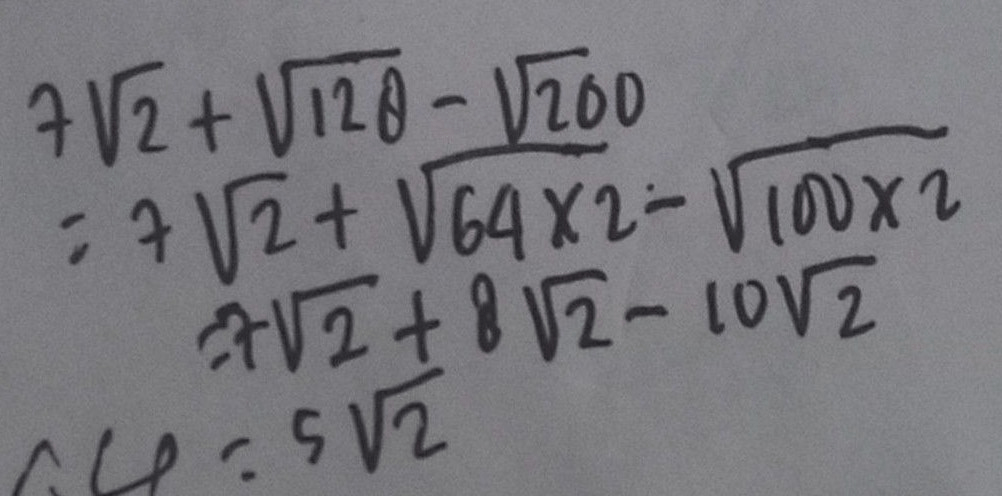 7√2 + √128 - √200
= 7√2 + √64 × 2 - √100 × 2
= 7√2 + 8√2 - 10√2
= 5√2